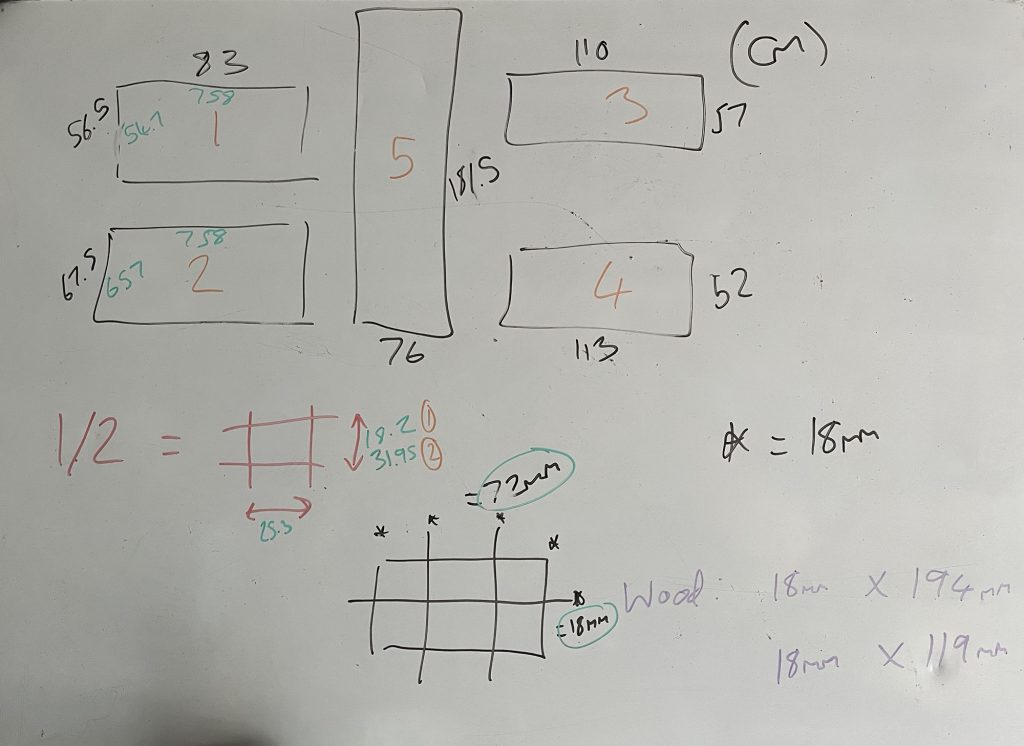 (cm)
83
56.5
758
547
1
67.5
758
657
2
5
181.5
76
110
3
57
4
52
113
1/2 =
18.2 1
31.95 2
25.3
* = 18mm
= 72mm
* * * *
*
= 18mm
Wood: 18mm x 194mm
18mm x 119mm